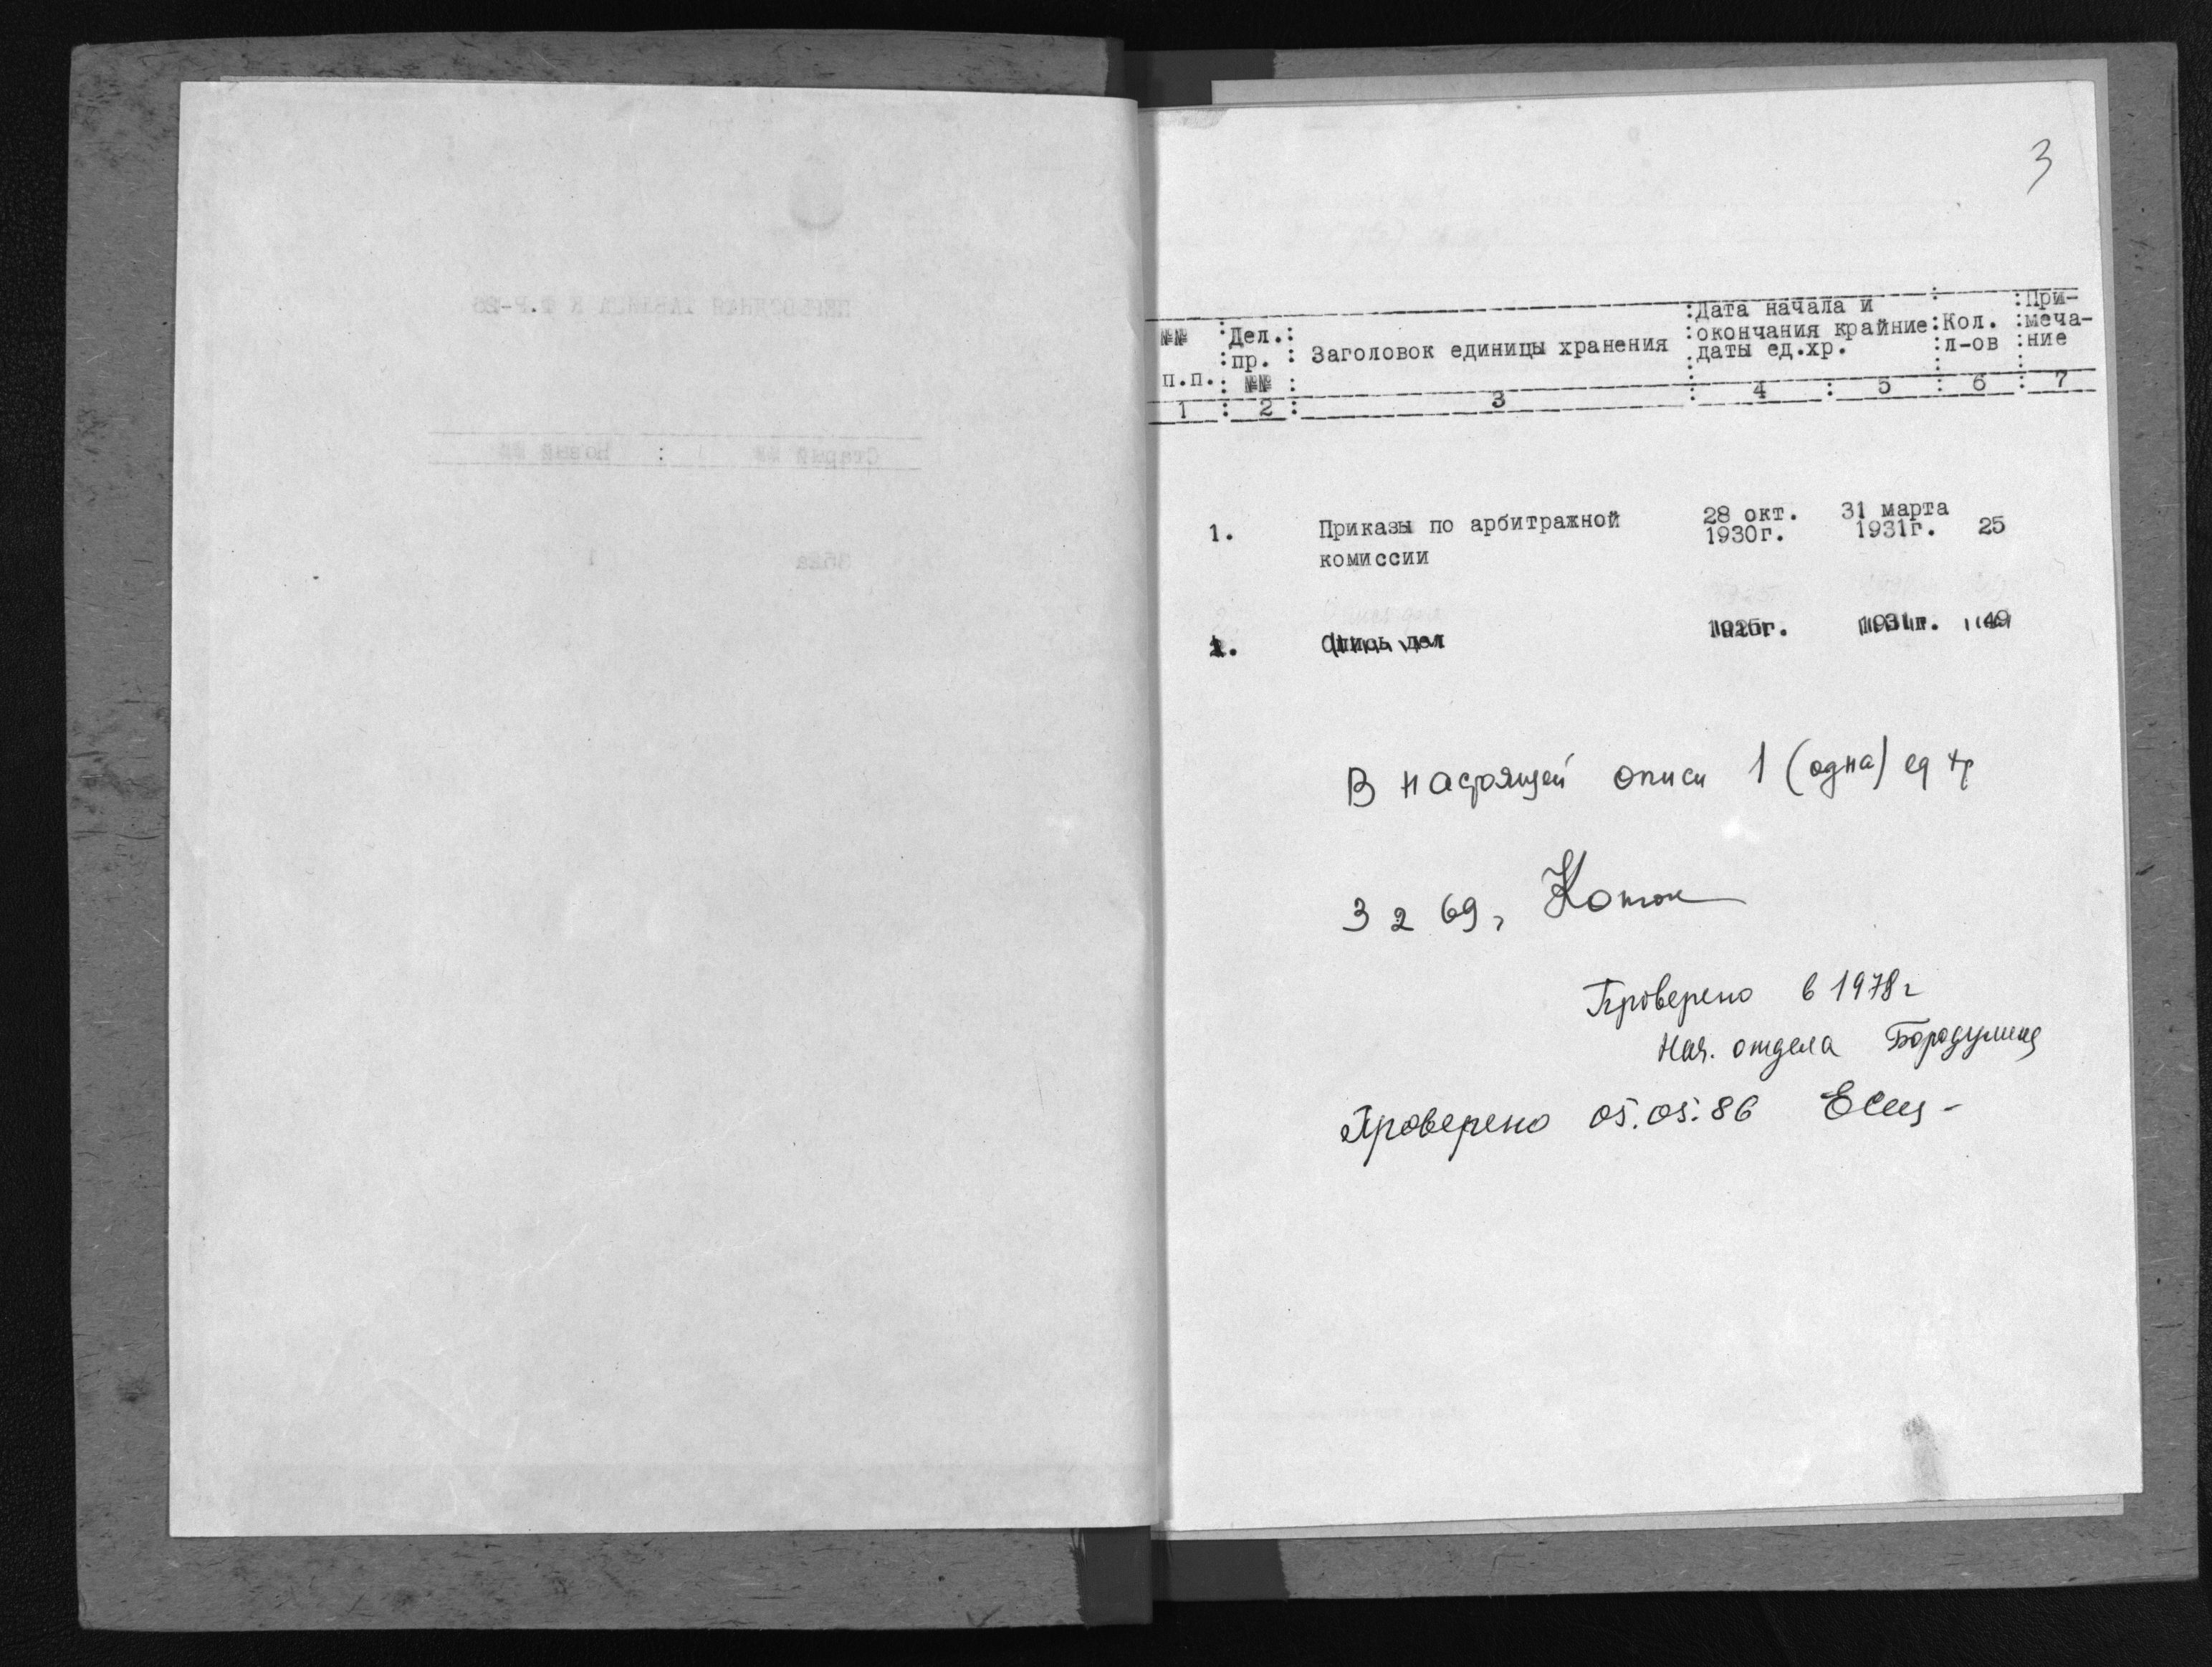 3
№№ п.п. : Дел. пр. №№ : Заголовок единицы хранения : Дата начала и окончания крайние даты ед.хр. : Кол. л-ов : При-меча-ние
1 : 2 : 3 : 4 : 5 : 6 : 7
1. Приказы по арбитражной 28 окт. 1930г. 31 марта 1931г. 25
комиссии
2. Опись дел 1925г. 1931г. 49
В настоящей описи 1 (одна) ед хр
3 2 69г
Проверено в 1978г
Нач. отдела Бородулина
Проверено 05.05.86